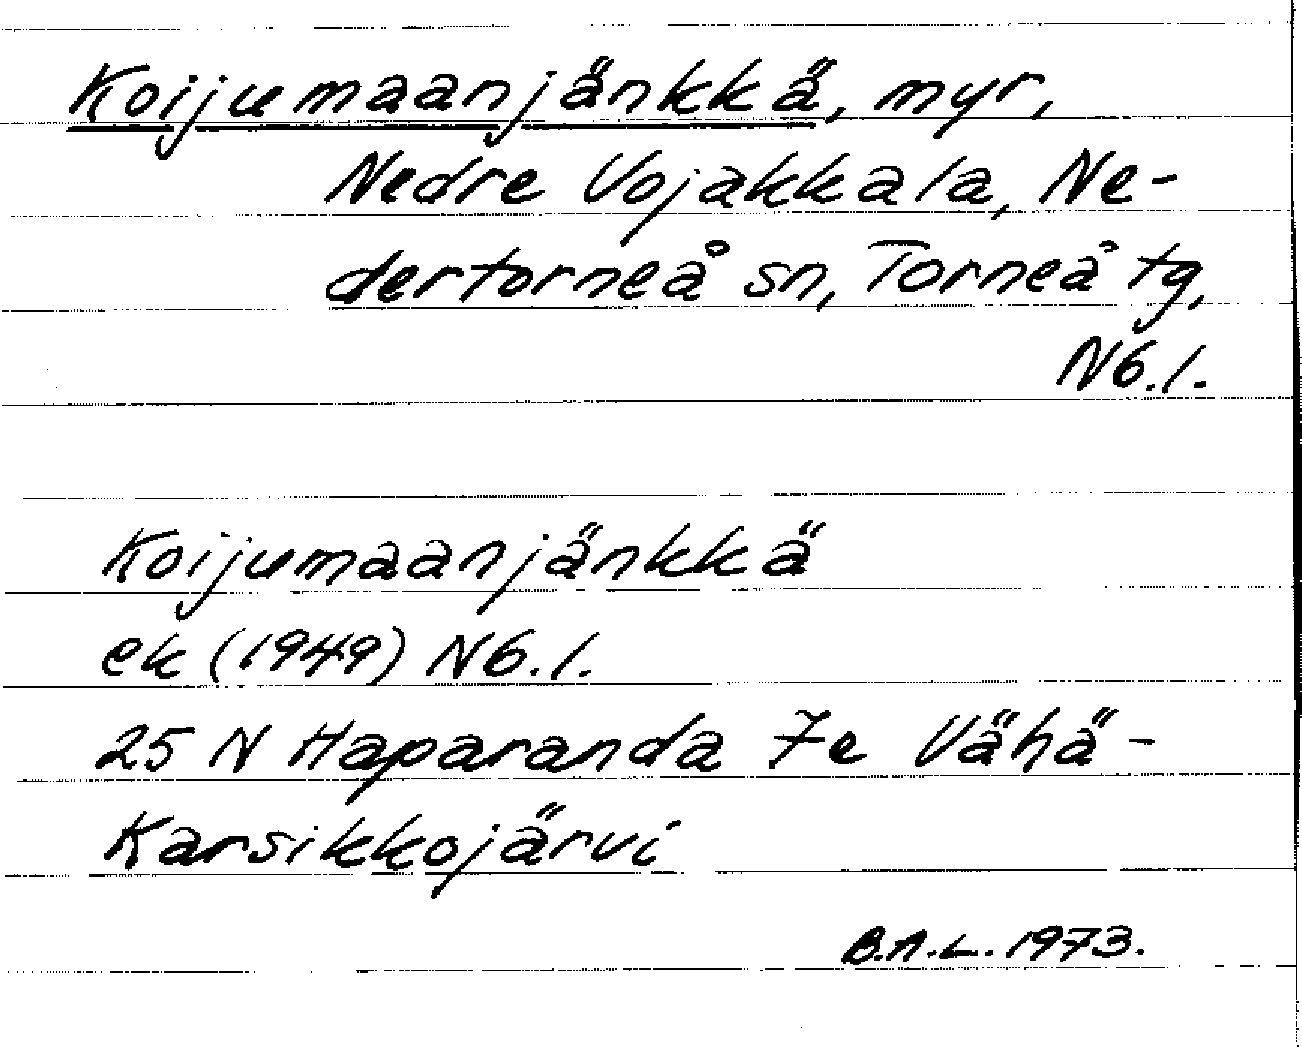 Koijumaanjänkkä, myr,
Nedre Vojakkala, Ne-
dertorneå sn, Torneå tg,
N6.1.
Koijumaanjänkkä
ek (1949) N6.1.
25 N Haparanda 7e Vähä-
Karsikkojärvi
B.A.L. 1973.